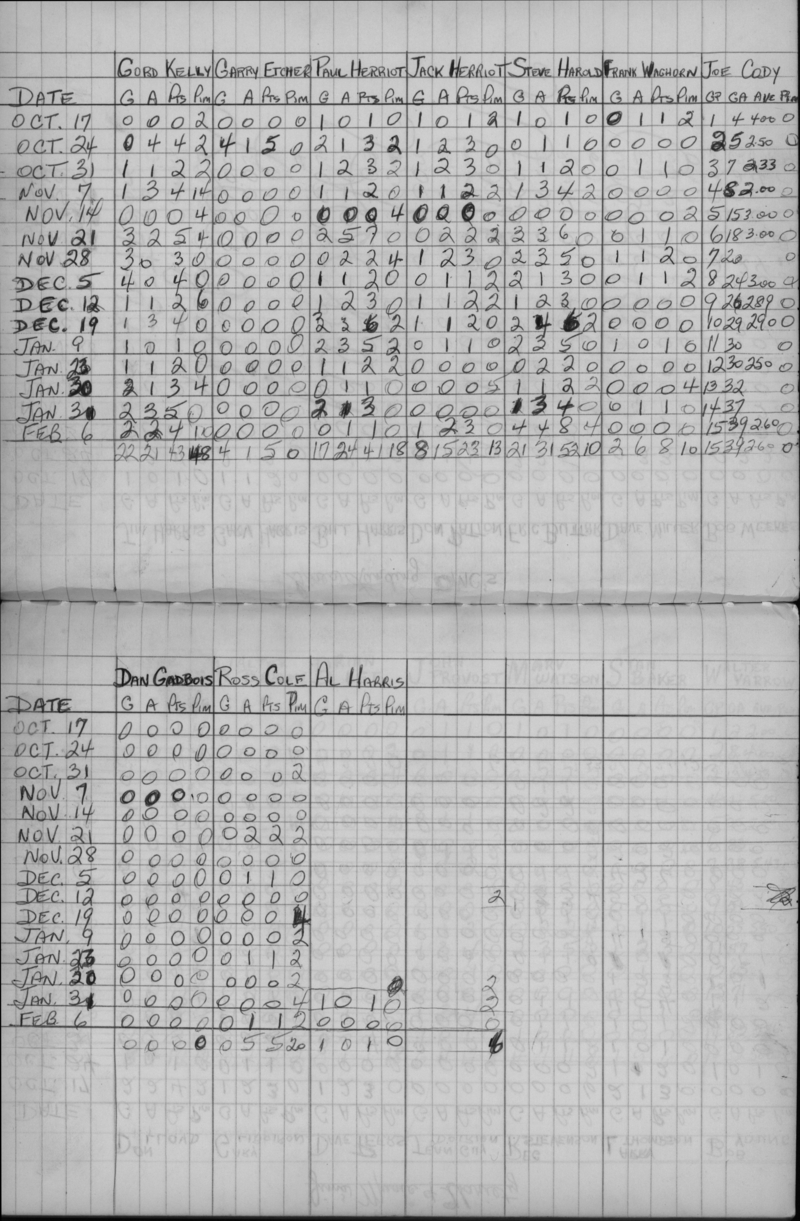 GORD KELLY GARRY ETCHER PAUL HERRIOT JACK HERRIOT STEVE HAROLD FRANK WAGHORN JOE CODY
DATE G A Pts Pim G A Pts Pim G A Pts Pim G A Pts Pim G A Pts Pim G A Pts Pim GP GA AVE Pim
OCT. 17 0 0 0 2 0 0 0 0 1 0 1 0 1 0 1 2 1 0 1 0 0 1 1 2 1 4 4.00 0
OCT. 24 0 4 4 2 4 1 5 0 2 1 3 2 1 2 3 0 0 1 1 0 0 0 0 0 2 5 2.50 0
OCT. 31 1 1 2 2 0 0 0 0 1 2 3 2 1 2 3 0 1 1 2 0 0 1 1 0 3 7 2.33 0
NOV. 7 1 3 4 14 0 0 0 0 1 1 2 0 1 1 2 2 1 3 4 2 0 0 0 0 4 8 2.00 0
NOV. 14 0 0 0 4 0 0 0 0 0 0 0 4 0 0 0 0 0 0 0 0 0 0 0 2 5 15 3.00 0
NOV 21 3 2 5 4 0 0 0 0 2 5 7 0 0 2 2 2 3 3 6 0 0 1 1 0 6 18 3.00 0
NOV 28 3 0 3 0 0 0 0 0 0 2 2 4 1 2 3 0 2 3 5 0 1 1 2 0 7 20 0
DEC. 5 4 0 4 0 0 0 0 0 1 1 2 0 0 1 1 2 2 1 3 0 0 1 1 2 8 24 3.00 0
DEC. 12 1 1 2 6 0 0 0 0 1 2 3 0 1 1 2 2 1 2 3 0 0 0 0 0 9 26 2.89 0
DEC. 19 1 3 4 0 0 0 0 0 3 3 6 2 1 1 2 0 2 4 6 2 0 0 0 0 10 29 2.90 0
JAN. 9 1 0 1 0 0 0 0 0 2 3 5 2 0 1 1 0 2 3 5 0 1 0 1 0 11 30 0
JAN. 23 1 1 2 0 0 0 0 0 1 1 2 2 0 0 0 0 0 2 2 0 0 0 0 0 12 30 2.50 0
JAN. 30 2 1 3 4 0 0 0 0 0 1 1 0 0 0 0 5 1 1 2 2 0 0 0 4 13 32 0
JAN. 31 2 3 5 0 0 0 0 0 2 1 3 0 0 0 0 0 1 3 4 0 0 1 1 0 14 37 0
FEB 6 2 2 4 10 0 0 0 0 0 1 1 0 1 2 3 0 4 4 8 4 0 0 0 0 15 39 2.60 0
22 21 43 48 4 1 5 0 17 24 41 18 8 15 23 13 21 31 52 10 2 6 8 10 15 39 2.60 0
DAN GADBOIS ROSS COLE AL HARRIS
DATE G A Pts Pim G A Pts Pim G A Pts Pim
OCT. 17 0 0 0 0 0 0 0 0
OCT. 24 0 0 0 0 0 0 0 0
OCT. 31 0 0 0 0 0 0 0 2
NOV 7 0 0 0 0 0 0 0 0
NOV 14 0 0 0 0 0 0 0 0
NOV. 21 0 0 0 0 0 2 2 2
NOV. 28 0 0 0 0 0 0 0 0
DEC. 5 0 0 0 0 0 1 1 0
DEC. 12 0 0 0 0 0 0 0 0 2
DEC. 19 0 0 0 0 0 0 0 4
JAN. 9 0 0 0 0 0 0 0 2
JAN. 23 0 0 0 0 0 1 1 2
JAN. 30 0 0 0 0 0 0 0 2 0 2
JAN. 31 0 0 0 0 0 0 0 4 1 0 1 0 2
FEB 6 0 0 0 0 0 1 1 2 0 0 0 0 0
0 0 0 0 0 5 5 20 1 0 1 0 6